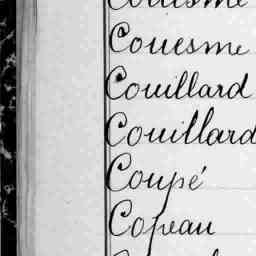 Couesme
Couesme
Couillard
Couillard
Coupé
Copeau